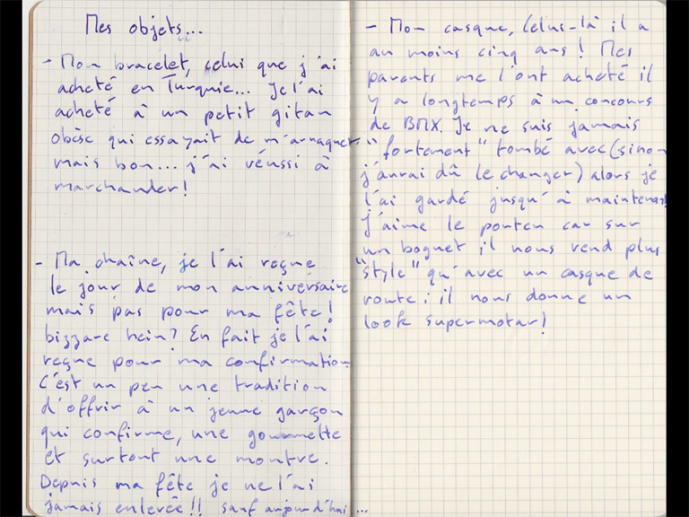 Mes objets...
- Mon bracelet, celui que j'ai
acheté en Turquie... Je l'ai
acheté à un petit gitan
obèse qui essayait de m'arnaquer
mais bon... j'ai réussi à
marchander!
- Ma chaîne, je l'ai reçue
le jour de mon anniversaire
mais pas pour ma fête!
bizzare hein? En fait je l'ai
reçue pour ma confirmation
C'est un peu une tradition
d'offrir à un jeune garçon
qui confirme, une gourmette
et surtout une montre.
Depuis ma fête je ne l'ai
jamais enlevée!! sauf aujourd'hui...
- Mon casque, Celui-là il a
au moins cinq ans! Mes
parents me l'ont acheté il
y a longtemps à un concours
de BMX. Je ne suis jamais
"fortement" tombé avec (sinon
j'aurai dû le changer) alors je
l'ai gardé jusqu'à maintenant
J'aime le porter car sur
un boguet il nous rend plus
"style" qu'avec un casque de
route: il nous donne un
look supermotar!